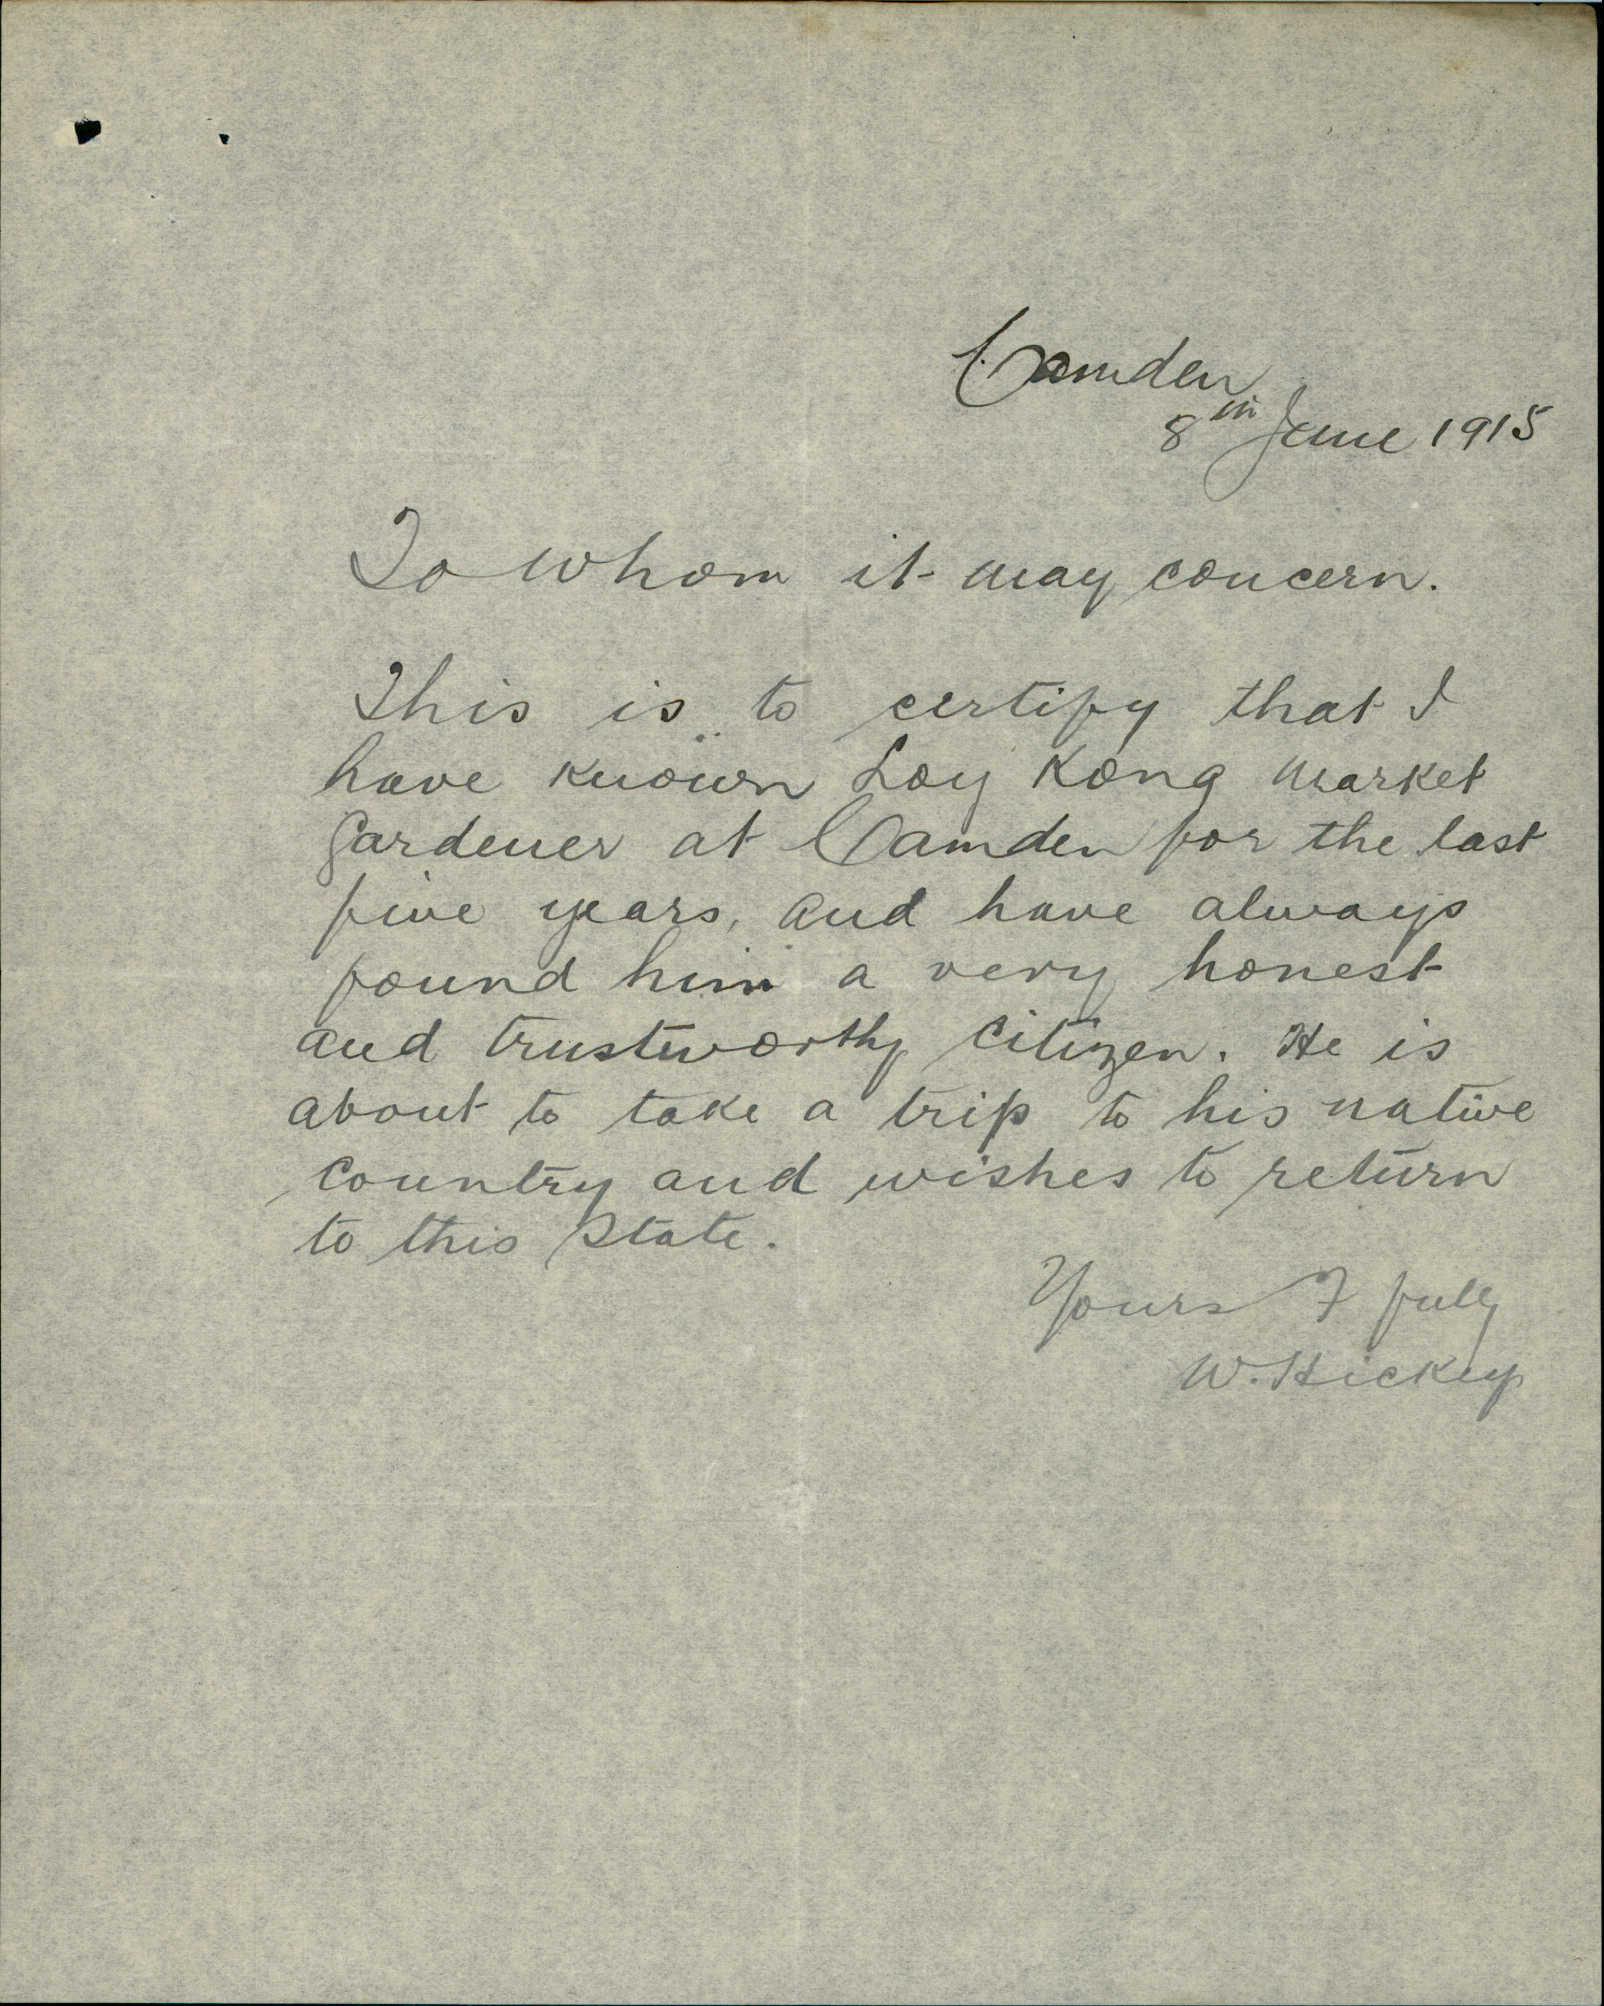 Camden
8th June 1915
To whom it may concern.
This is to certify that I
have known Loy Kong market
gardener at Camden for the last
five years, and have always
found him a very honest
and trustworthy citizen. He is
about to take a trip to his native
country and wishes to return
to this State.
Yours F fully
W. Hickey